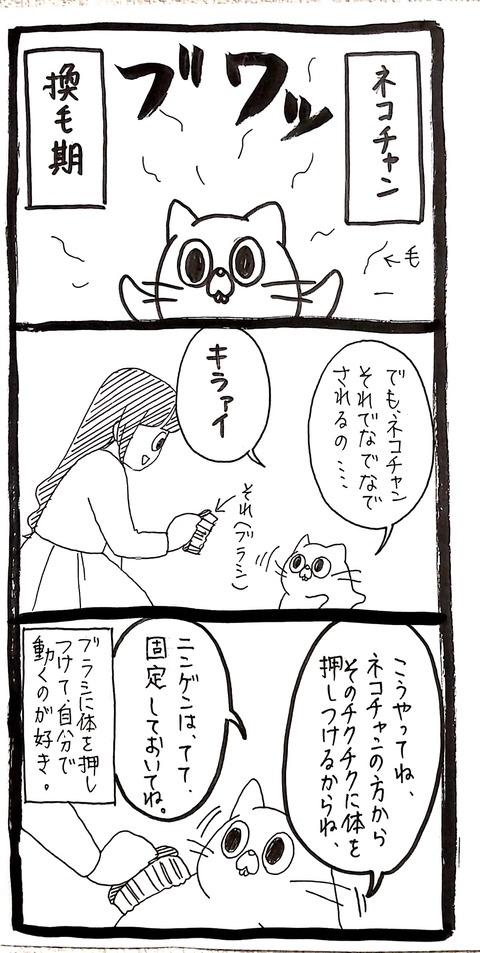 ネコチャン
ブワッ
換毛期
←毛
でも、ネコチャン
それでなでなで
されるの……
キラァイ
それ(ブラシ)
こうやってね、
ネコチャンの方から
そのチクチクに体を
押しつけるからね、
ニンゲンは、てて、
固定しておいてね。
ブラシに体を押し
つけて自分で
動くのが好き。